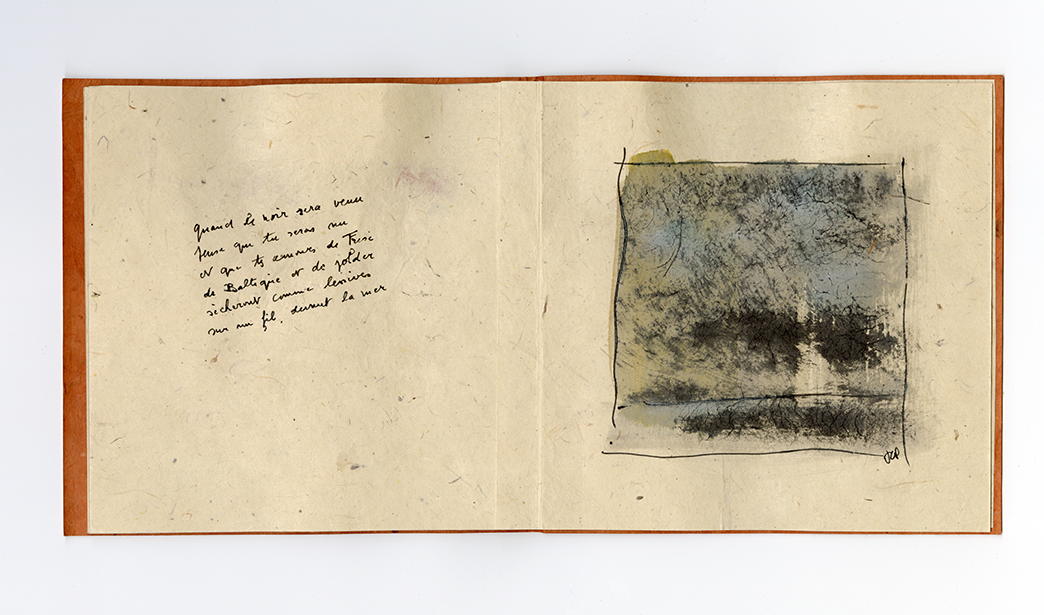 quand le noir sera venu
pense que tu seras nu
et que tes amours de Frise
de Baltique et de polder
sècheront comme lessives
sur un fil, devant la mer
JCP